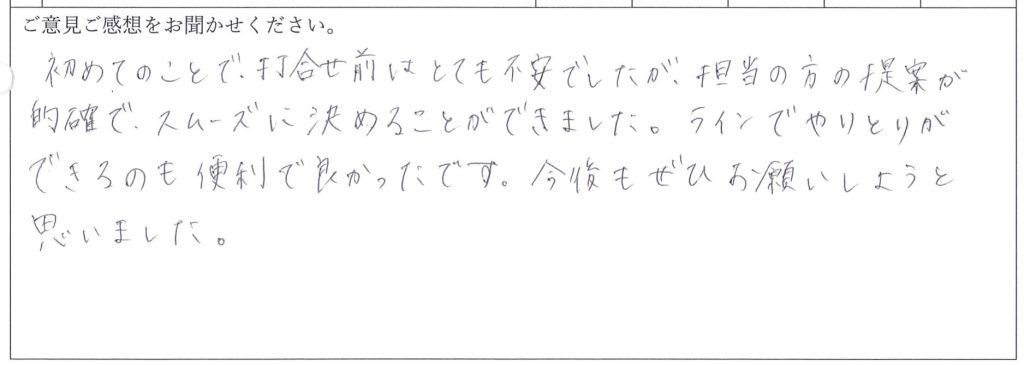 ご意見ご感想をお聞かせください。
初めてのことで、打合せ前はとても不安でしたが、担当の方の提案が
的確で、スムーズに決めることができました。ラインでやりとりが
できるのも便利で良かったです。今後もぜひお願いしようと
思いました。